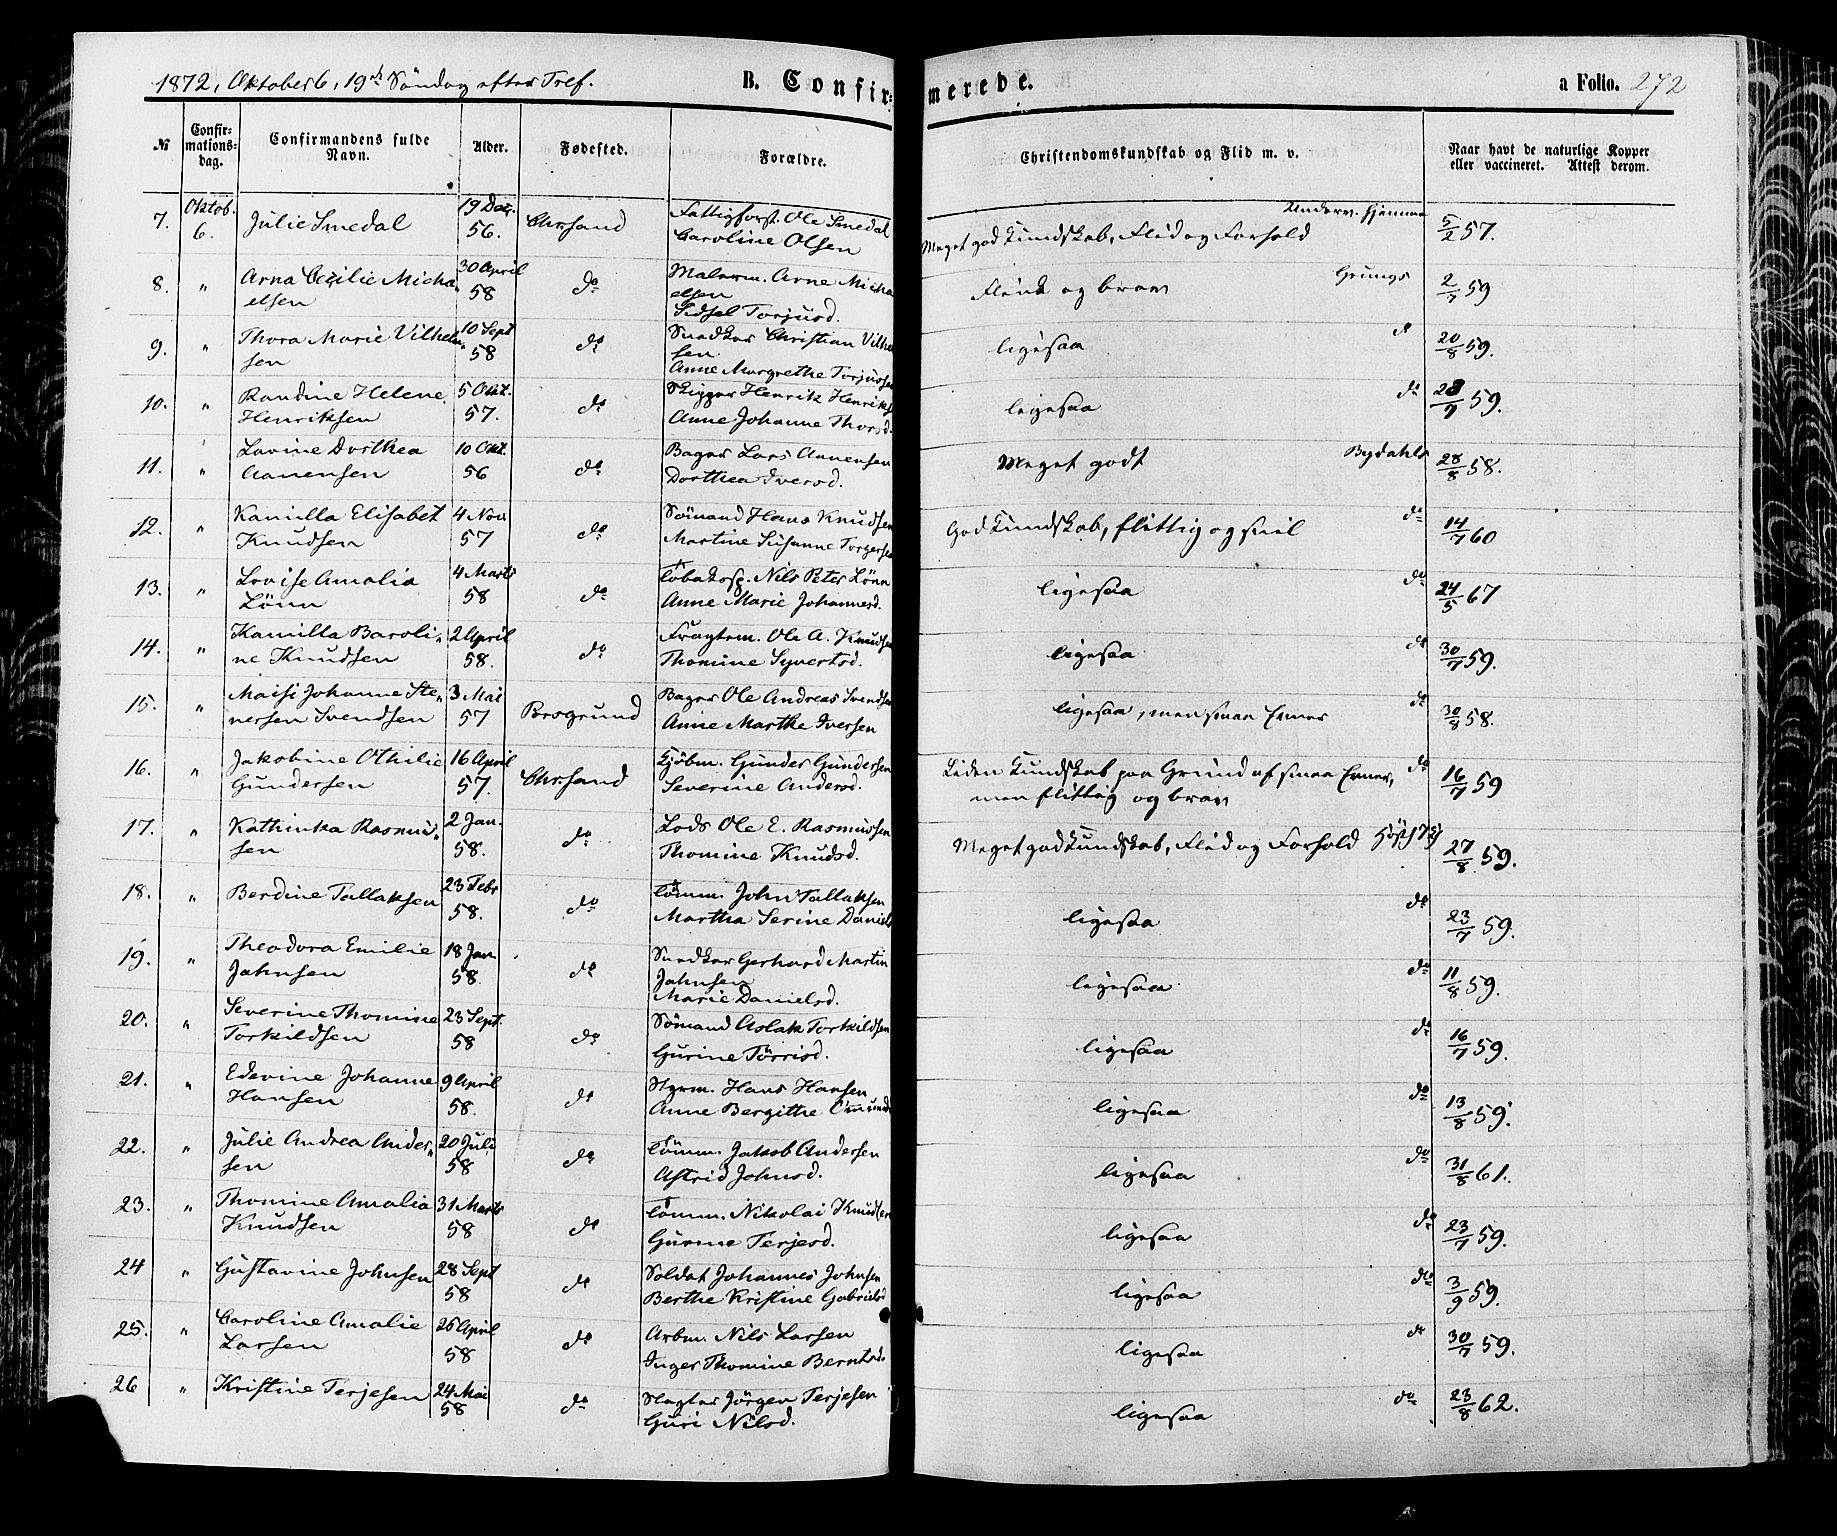 1872, Oktober 6, 19d Söndag efter Tref.
B. Confirmerede.
a Folio. 272
№ Confir-mations-dag. Confirmandens fulde Navn. Alder. Fødested. Forældre. Christendomskundskab og Flid m. v. Naar havt de naturlige Kopper eller vaccineret. Attest derom.
Undervi. Hjemme
7. Oktob. 6. Julie Smedal 19 Dec. 56. Chrsand Fattigforst. Ole Smedal Caroline Olsen Meget god Kundskab, Flid og Forhold 5/2 57.
8. " Arna Cecilie Michaelsen 30 April 58 do Malerm. Arne Michaelsen Sidsel Torjusd. Flink og brav Grungs 2/7 59
9. " Thora Marie Vilhelmsen 10 Sept 58 do Snedker Christian Vilhelmsen Anne Margrethe Torjussen ligesaa do 20/8 59.
10. " Randine Helene Henriksen 5 Okt. 57. do Skipper Henrik Henriksen Anne Johanne Thorsd. ligesaa do 28/7 59.
11. " Lovine Dorthea Aanensen 10 Okt. 56 do Bager Lars Aanensen Dorthea Iversd. Meget godt Bydahls 28/8 58.
12. " Kamilla Elisabet Knudsen 4 Nov. 57 do Sömand Hans Knudsen Martine Susanne Torgersen God Kundskab, flittig og snil do 14/7 60
13. " Lovise Amalia Lönn 4 Marts 58 do Tobaksp. Nils Peter Lönn Anne Marie Johannesd. ligesaa do 24/5 67
14. " Kamilla Baroline Knudsen 2 April 58. do Fragtem. Ole A. Knudsen Thomine Syvertsd. ligesaa do 30/7 59.
15. " Maisi Johanne Stenersen Svendsen 3 Mai 57 Brogrund Bager Ole Andreas Svendsen Anne Marthe Iversen ligesaa, men smaa Evner do 30/8 58.
16. " Jakobine Othilie Gundersen 16 April 57. Chrsand Kjöbm. Gunder Gundersen Severine Andersd. Liden Kundskab paa Grund af smaa Evner, men flittig og brav do 16/7 59
17. " Kathinka Rasmussen 2 Jan. 58. do Lods Ole E. Rasmussen Thomine Knudsd. Meget god Kundskab, Flid og Forhold 27/8 59.
18. " Berdine Tallaksen 23 Febr 58. do Tömm. John Tallaksen Martha Serine Daniels ligesaa do 23/7 59.
19. " Theodora Emilie Jahnsen 18 Jan. 58. do Snedker Gerhard Martin Jahnsen Marie Danielsd. ligesaa do 11/8 59.
20. " Severine Thomine Torkildsen 23 Sept. 58 do Sömand Aslak Torkildsen Gurine Törrisd. ligesaa do 16/7 59.
21. " Edevine Johanne Hansen 9 April 58. do Styrm. Hans Hansen Anne Bergithe ligesaa do 13/8 59.
22. " Julie Andrea Andersen 20 Juli 58 do Tömm. Jakob Andersen Astrid Johnsd. ligesaa do 31/8 61.
23. " Thomine Amalia Knudsen 31 Marts 58 do Tömm. Nikolai Knudsen Gurine Terjesd. ligesaa do 23/7 59.
24 " Gustavine Johnsen 28 Sept 58 do Soldat Johannes Johnsen Berthe Kristine Gabrielsd ligesaa do 3/9 59.
25. " Caroline Amalie Larsen 26 April 58 do Arbm. Nils Larsen Inger Thomine Berntsd. ligesaa do 30/7 59.
26 " Kristine Terjesen 24 Mai 58 do Slagter Jörgen Terjesen Guri Nilsd. ligesaa do 23/8 62.